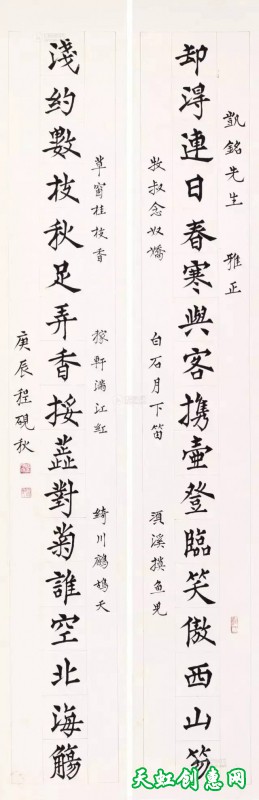 凱銘先生 雅正
却淂連日春寒與客携壺登臨笑傲西山笏
牧叔念奴嬌 白石月下笛 須溪摸魚兒
淺約數枝秋足弄香挼蕋對菊誰空北海觴
草窗桂枝香 稼軒滿江紅 綺川鷓鴣天
庚辰程硯秋
天虹创惠网